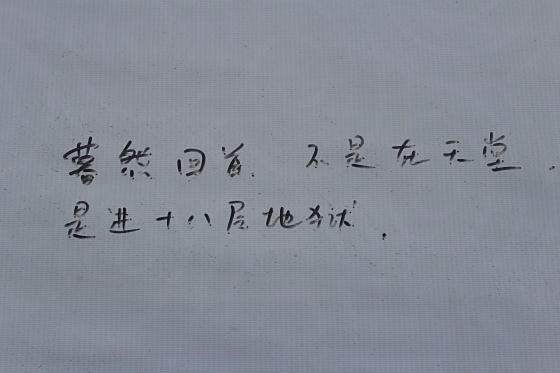 蓦然回首.不是在天堂.
是进十八层地狱.